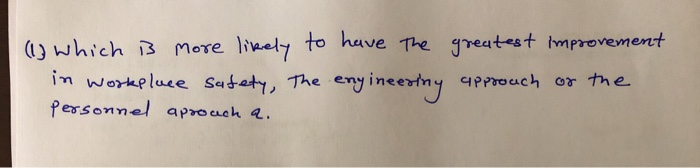 (1) which is more likely to have The greatest Improvement
in workpluce Safety, The engineering approuch or the
personnel aprouch a.